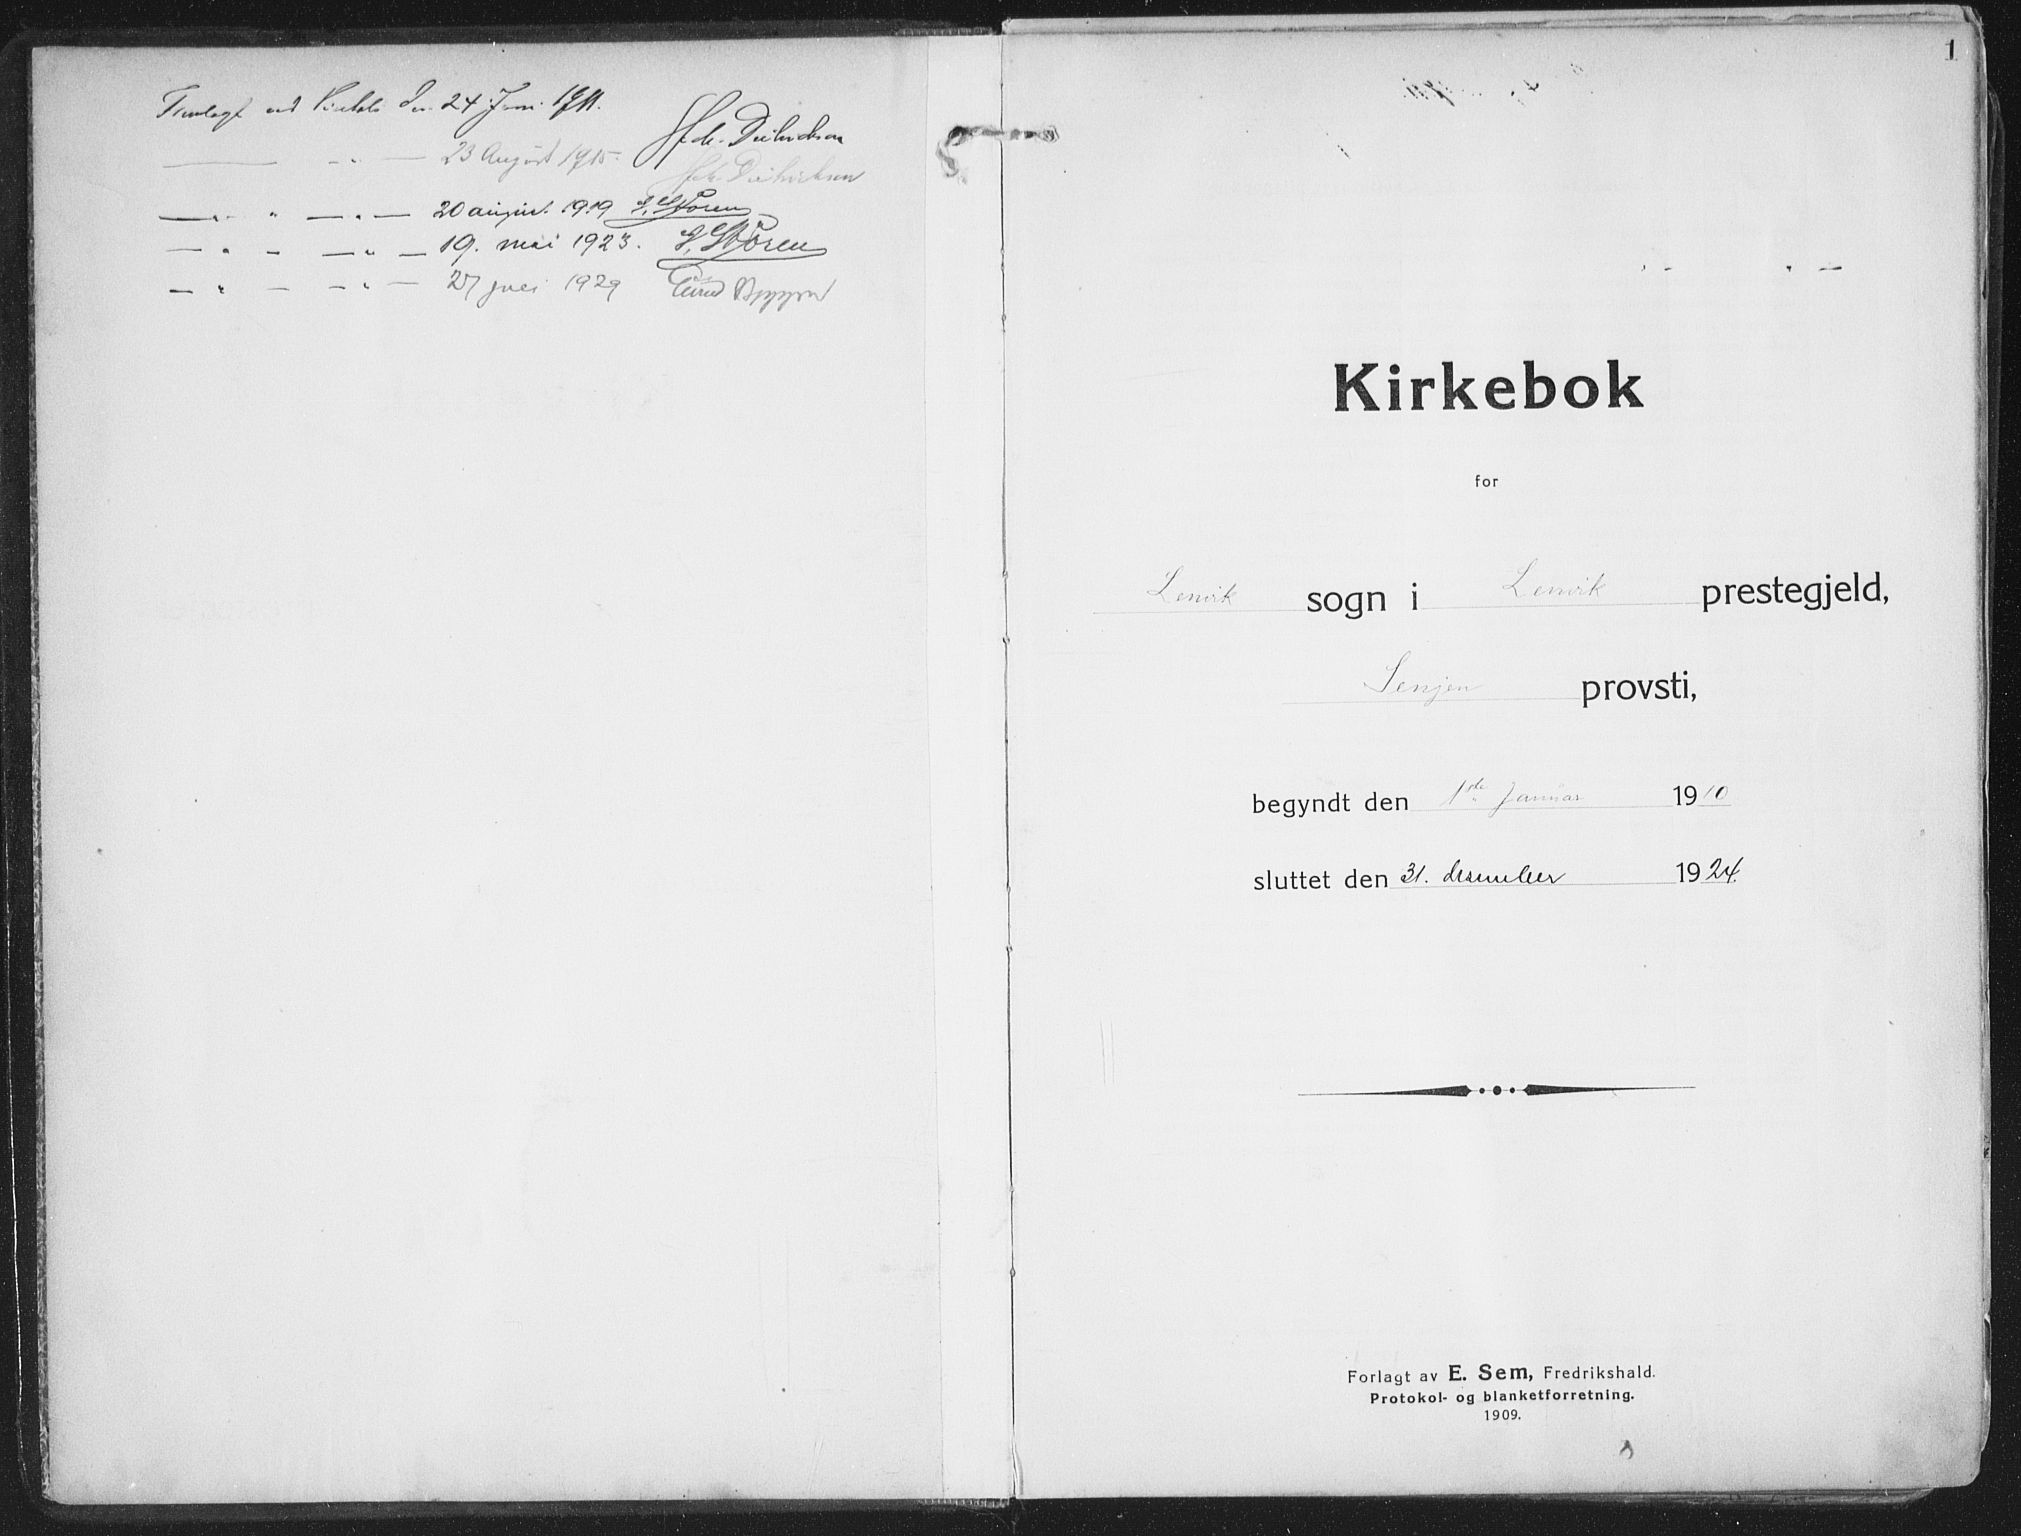 Fremlagt ved Visitats den 24 Juni 1911. Fredr. Diedrichson
— „ — 23 August 1915 Fredr. Diedrichson
— „ „ — „ — 20 august. 1919 E. Støren
— „ – — „ — 19. mai 1923. E. Støren
— „ — – „ — 27 juni 1929 Eivind Berggrav
1
Kirkebok
for
Lenvik sogn i Lenvik prestegjeld,
Senjen provsti,
begyndt den 1ste Januar 1910
sluttet den 31. desember 1924.
Forlagt av E. Sem, Fredrikshald.
Protokol- og blanketforretning.
1909.